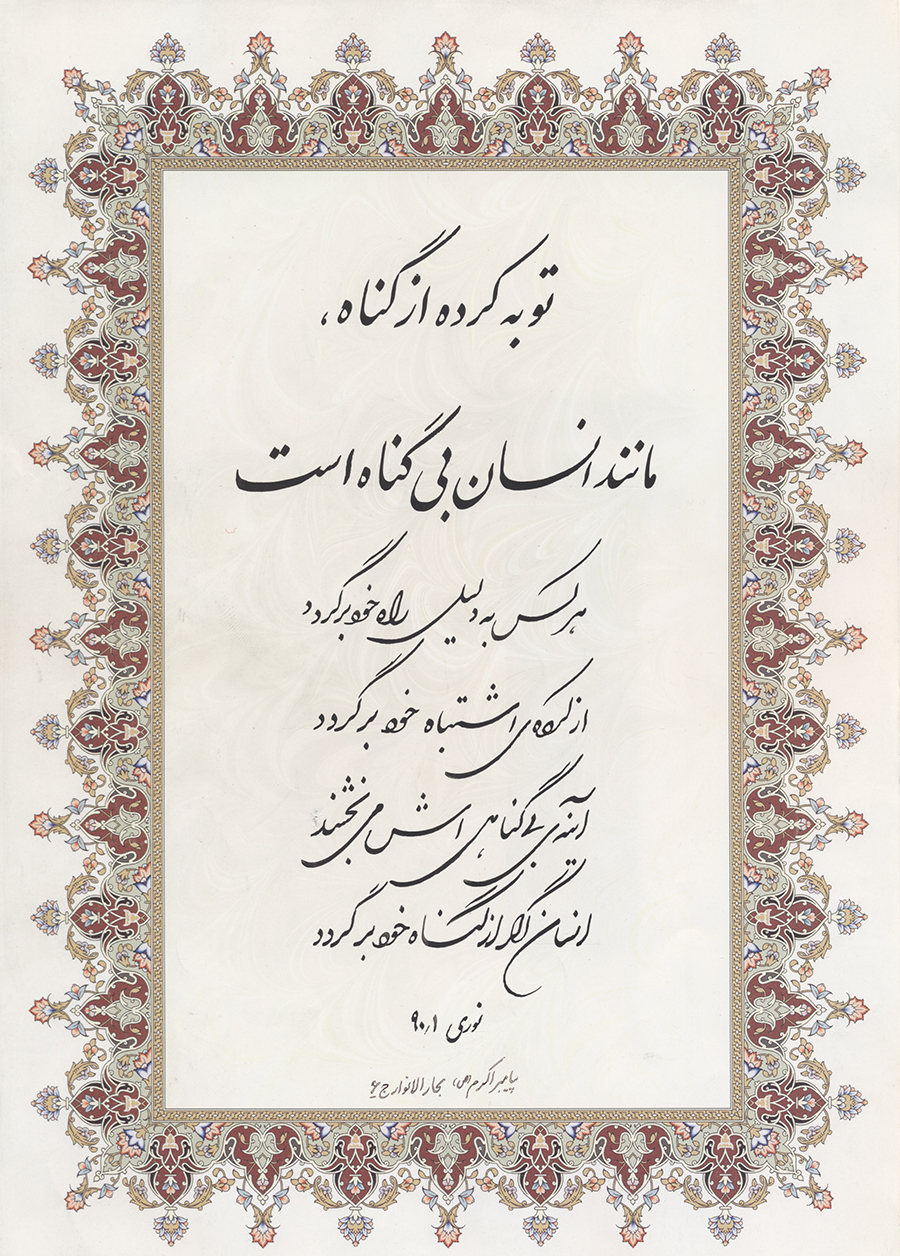 توبه کرده از گناه،
مانند انسان بی گناه است
هرکس به دلیل راه خود برگردد
از کرده‌ی اشتباه خود برگردد
آئینه‌ی بی گناهی اش می بخشند
انسان اگر از گناه خود برگردد
نوری ۹۰٫۱
پیامبر اکرم (ص) بحار الانوار ج ۶